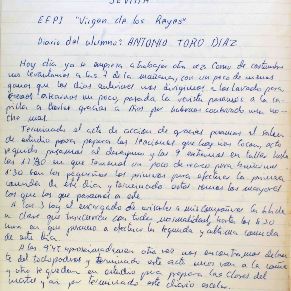 SEVILLA
EFPI "Virgen de los Reyes"
Diario del alumno: ANTONIO TORO DIAZ
Hoy dia ya se empieza a trabajar otra vez como de costumbre
nos levantamos a las 7 de la mañana, con un poco de menos
ganas que los dias anteriores nos dirigimos a los lavabo para
poco, pasada la revista pasamos a la ca-
pilla a darles gracias a Dios por habernos conservado una no-
che mas.
Terminado el acto de accion de gracias pasamos al salon
de estudio para preparar las lecciones que hoy nos tocan, acto
seguido pasamos al desayuno y las 9 entramos en taller hasta
las 12'30 en que tenemos un poco de recreo para
1'30 son los pequeños los primeros para efectuar la primera
comida de este dia y terminado estos somos los mayores
los que los que pasamos a este.
las 3 hay el encargado de avisarles a mis compañeros la salida
a clase que transcurren con toda normalidad, hasta las 6'30
hora en que pasamos a efectuar la segunda y ultima comida
de este dia.
A las 9'45 aproximadamente otra vez nos encontramos delan-
te del todopoderoso y terminado este acto unos van a la cama
y otro se quedan en estudio para preparar las clases del
martes, y asi por terminado este diario escolar.